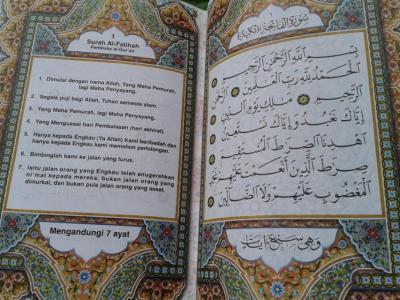 1
Surah Al-Fatihah
Pembuka al-Qur'an
1. Dimulai dengan nama Allah, Yang Maha Pemurah,
lagi Maha Penyayang.
2. Segala puji bagi Allah, Tuhan semesta alam.
3. Yang Maha Pemurah, lagi Maha Penyayang.
4. Yang Menguasai hari Pembalasan (hari akhirat).
5. Hanya kepada Engkau (Ya Allah) Kami beribadah dan
hanya kepada Engkau kami memohon pertolongan.
6. Bimbinglah kami ke jalan yang lurus.
7. Iaitu jalan orang yang Engkau telah anugerahkan
ni'mat kepada mereka, bukan jalan orang yang
dimurkai, dan bukan pula jalan orang yang sesat.
Mengandungi 7 ayat
سورة الفاتحة
بسم الله الرحمن الرحيم
الحمد لله رب العالمين
الرحمن الرحيم ملك يوم الدين
إياك نعبد وإياك نستعين
اهدنا الصراط المستقيم
صراط الذين أنعمت عليهم غير
المغضوب عليهم ولا الضالين
وهي سبع آيات